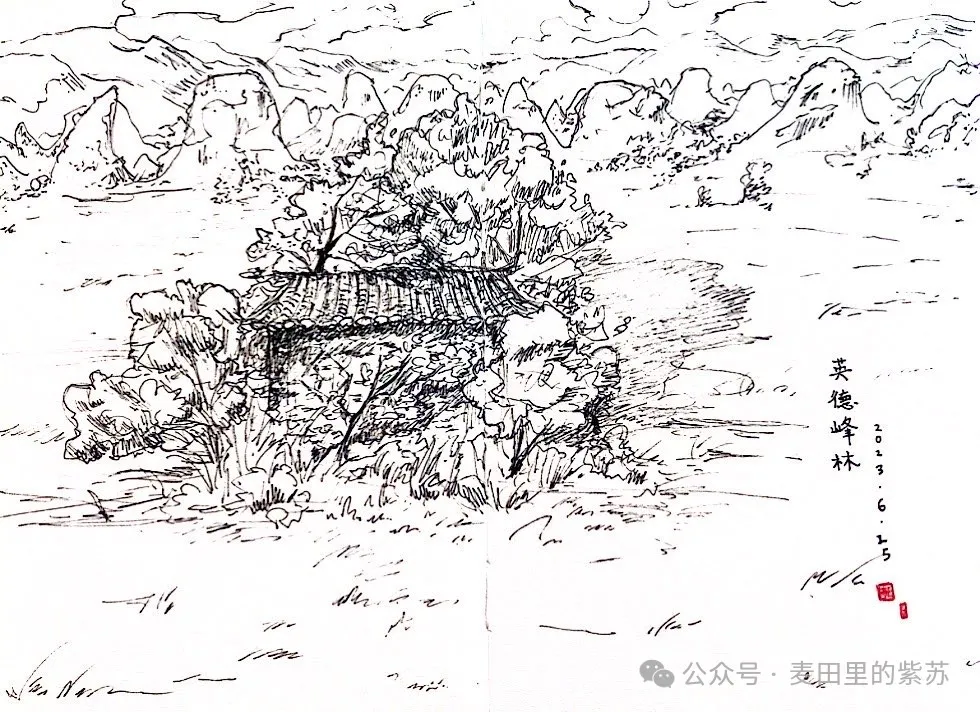 英德峰林
2023.6.25
公众号·麦田里的紫苏